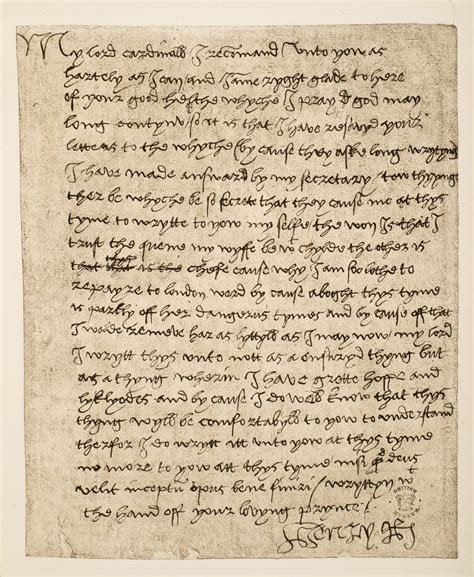 My lord cardinall I recomand unto yow as
hartely as I can and I am ryght glade to here
of your good helthe whyche I pray god may
long contynu / so it is that I have resayvyd your
letters to the whyche (by cause they aske long wrytyng
I have made answar by my secretary / tow thyngs
ther be whyche be so secrett that they cause me at thys
tyme to wrytte to yow my selfe / the won is that I
trust the quene my wyffe be wt chylde the other is
chefe cause why I am so lothe to
repayre to london ward by cause aboght thys tyme
is partly off her dangerus tymes and by cause off that
I wolde remove har as lyttyll as I may now / my lord
I wrytt thys unto nott as a ensuryd thyng but
as a thyng wherin I have grette hoppe and
lyklyodes and by cause I do well know that thys
thyng wylbe comfortabyll to yow to understand
therfor I do wrytt itt unto yow at thys tyme
no more to yow att thys tyme nisi qd deus
velit inceptum opus bene finiri / wryttyn wt
the hand off your lovyng prynce
Henry
BRITISH
MUSEUM